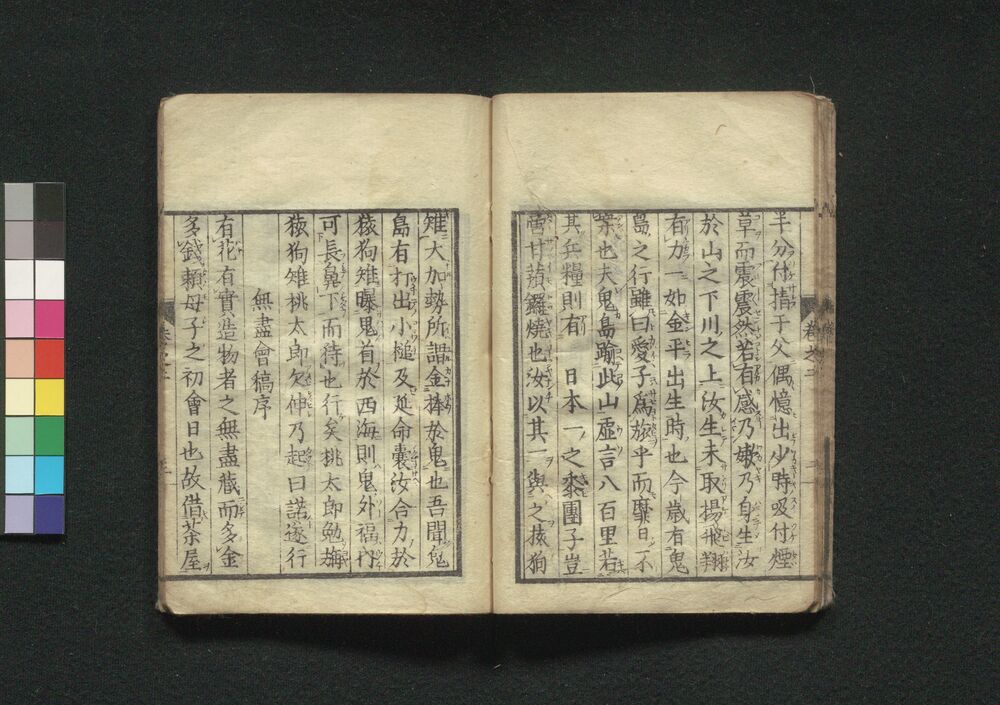 半分付掯于父偶憶出少時吸付煙
草而震震然若有感乃嫰乃身生汝
於山之下川之上汝生未取揚飛翔
有力一如金平出生時也今歳有鬼
島之行雖曰愛子爲旅乎而靡日不
榮也夫鬼島踰此山虛言八百里若
其兵糧則有 日本一之黍團子豈
啻甘蘋鑼燒也汝以其一與之猿狗
雉大加勢所謂金棒於鬼也吾聞鬼
島有打出小槌及延命嚢汝合力於
猿狗雉曝鬼首於西海則鬼外福内
可長鼻下而待也行矣桃太郎勉旃
猿狗雉桃太郎欠伸乃起曰諾遂行
無盡會稿序
有花有實造物者之無盡藏而多金
多錢頼母子之初會日也故借茶屋
卷之二